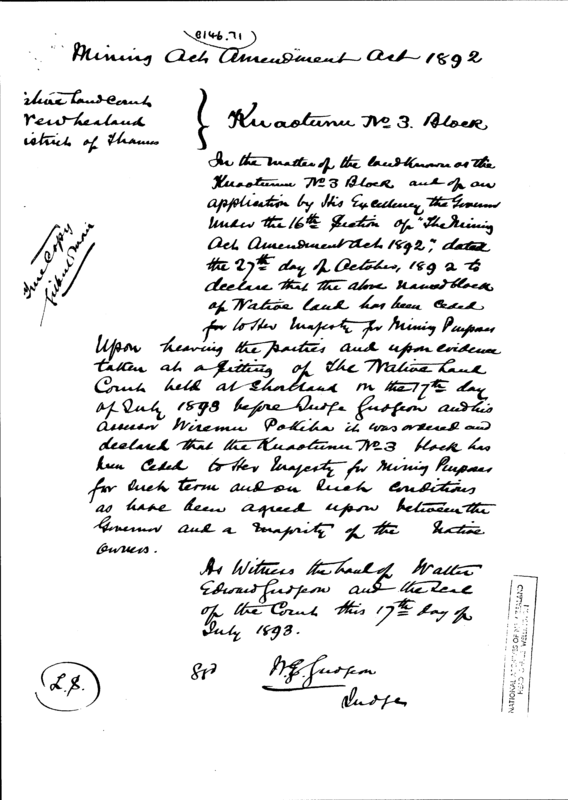 8146.71
Mining Act Amendment Act 1892
ative Land Court
New Zealand
istrict of Thames
Kuaotunu No 3. Block
In the matter of the land known as the
Kuaotunu No 3 Block and of an
application by His Excellency the Governor
under the 16th Section of "The Mining
Act Amendment Act 1892", dated
the 27th day of October, 1892 to
declare that the above named block
of Native land has been ceded
for to Her Majesty for Mining Purposes
True Copy
Gilbert Mair
Upon hearing the parties and upon evidence
taken at a sitting of The Native Land
Court held at Shortland on the 17th day
of July 1893 before Judge Gudgeon and his
assessor Wiremu Pokiha it was ordered and
declared that the Kuaotunu No 3 block has
been ceded to Her Majesty for Mining Purposes
for such term and on such conditions
as have been agreed upon between the
Governor and a majority of the Native
owners.
As Witness the hand of Walter
Edward Gudgeon and the seal
of the Court this 17th day of
July 1893.
L.S.
Sgd W.E. Gudgeon
Judge
NATIONAL ARCHIVES OF NEW ZEALAND
HEAD OFFICE WELLINGTON